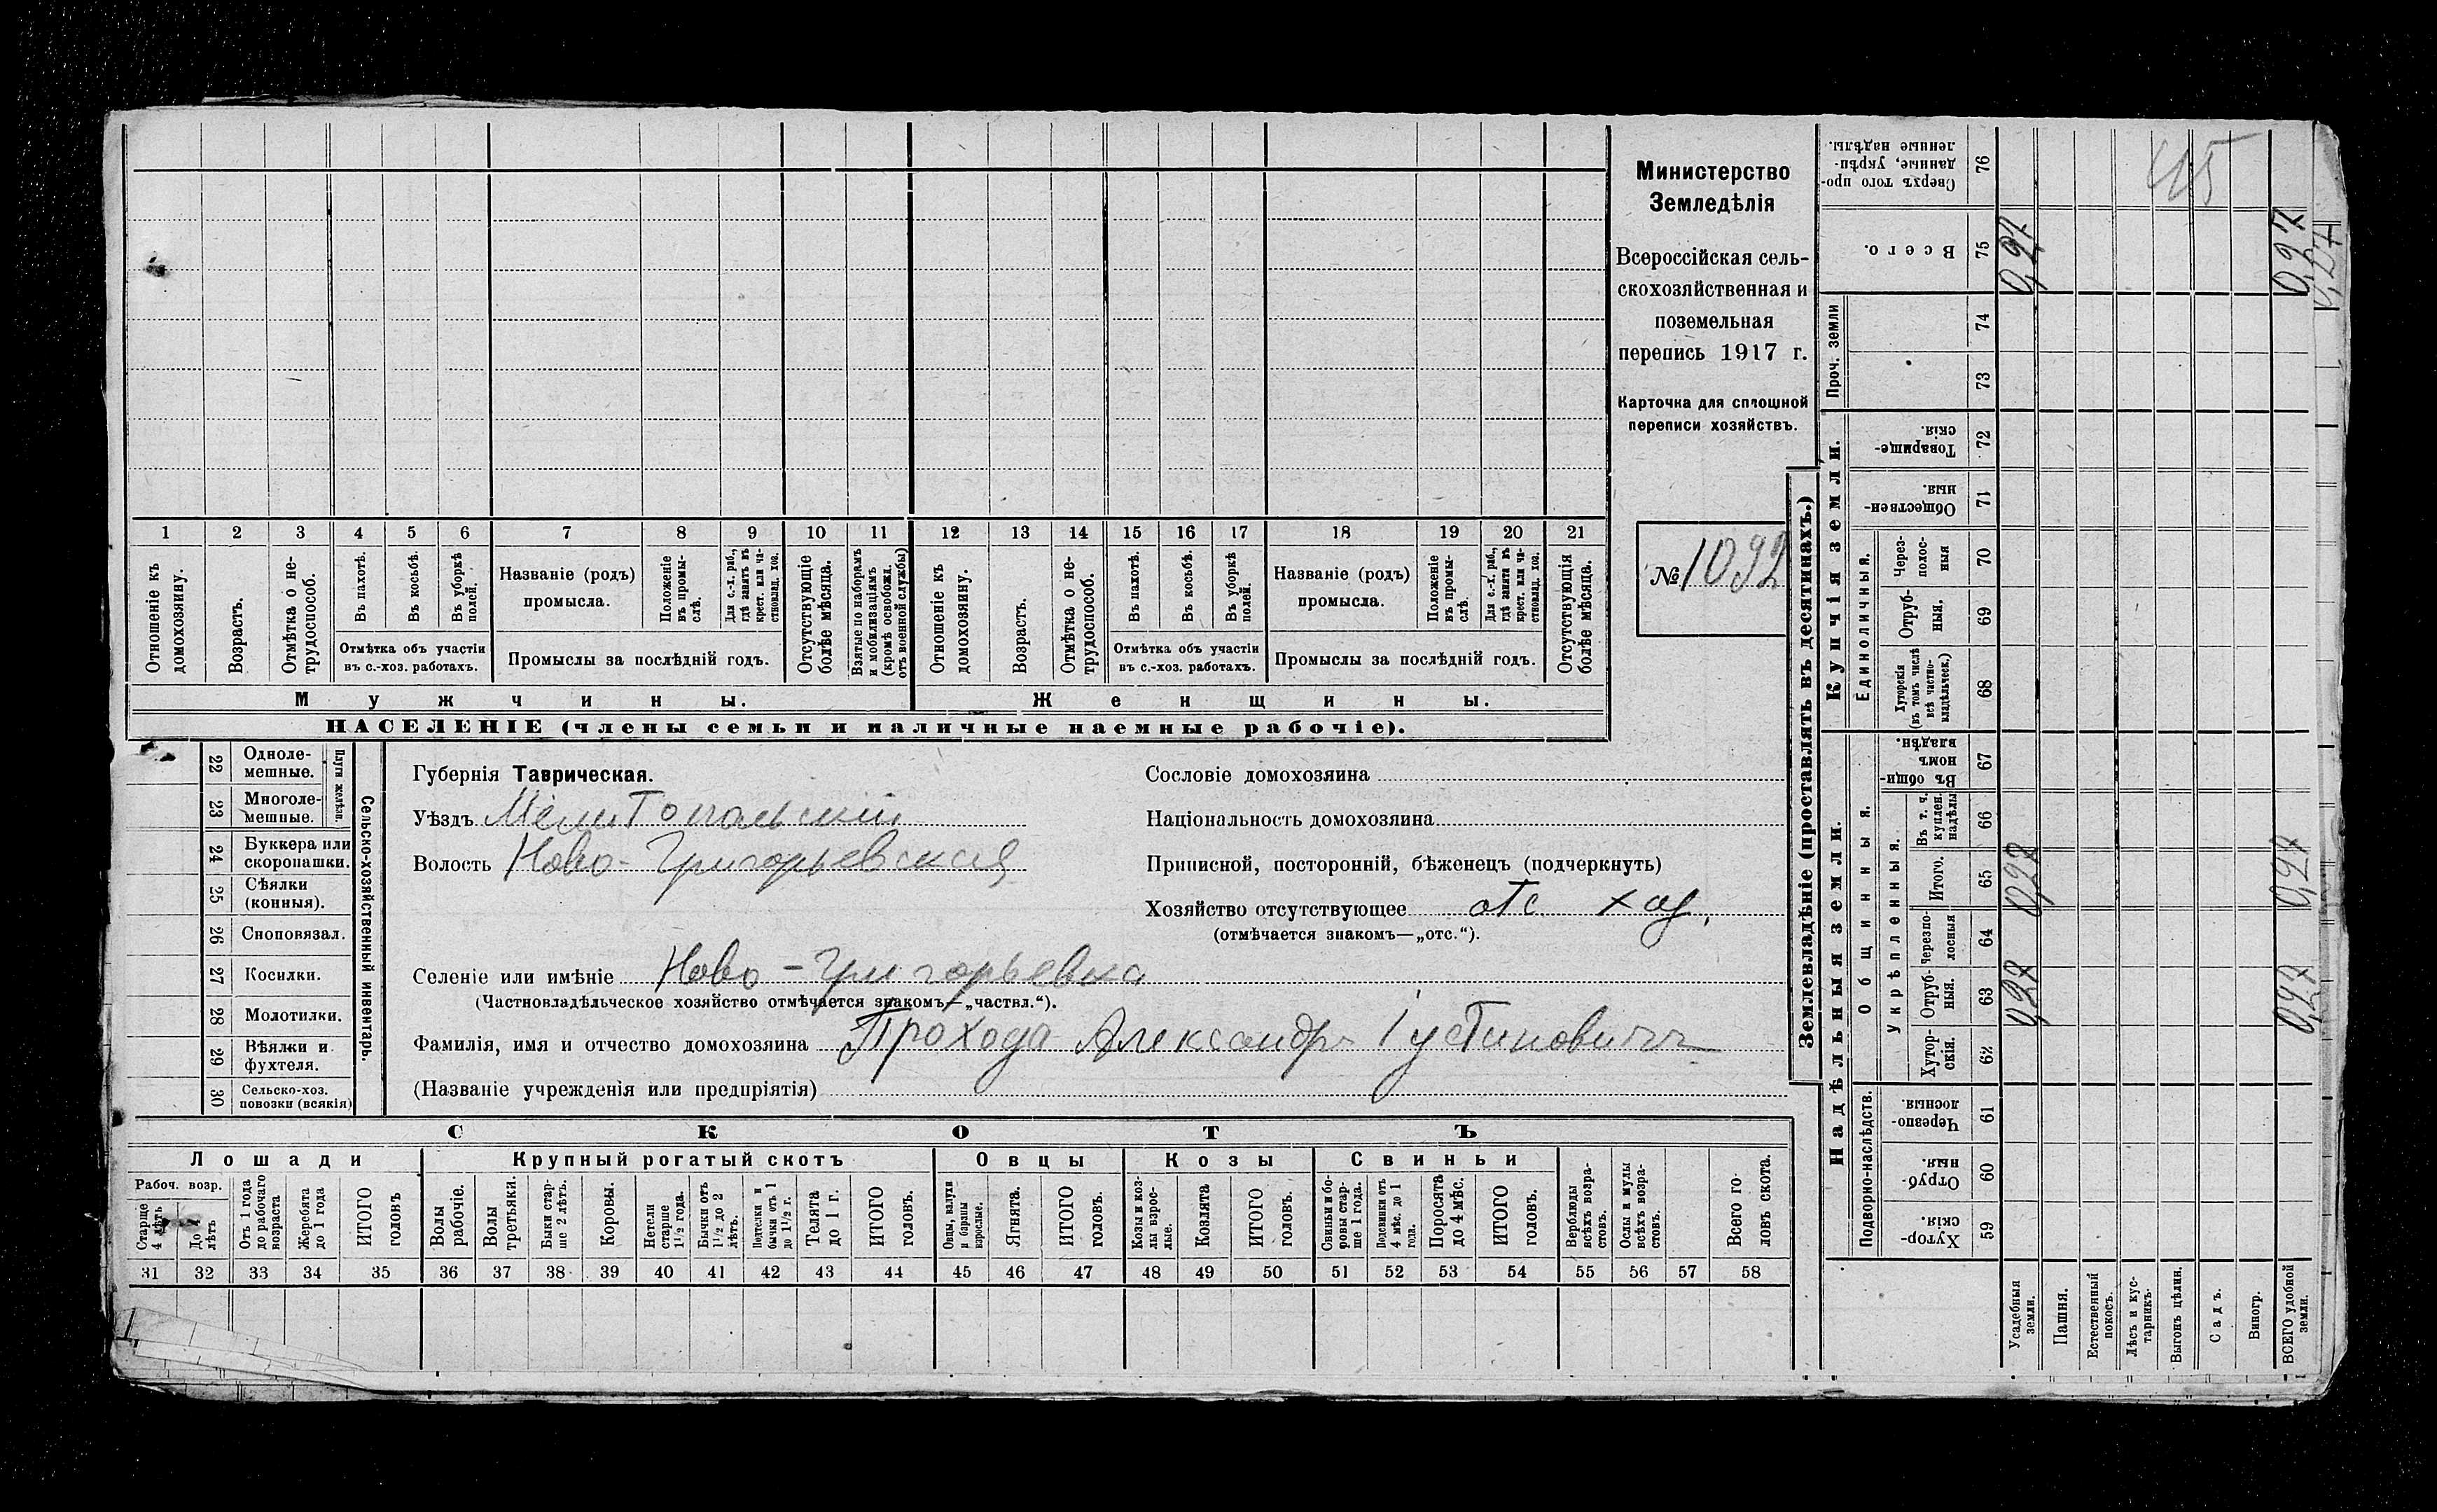 Министерство
Земледѣлія
Всероссійская сель-
скохозяйственная и
поземельная
перепись 1917 г.
Карточка для сплошной
переписи хозяйствъ.
№ 1092
1 2 3 4 5 6 7 8 9 10 11 12 13 14 15 16 17 18 19 20 21
Отношеніе къ домохозяину.
Возрастъ.
Отмѣтка о не-трудоспособ.
Въ пахотѣ.
Въ косьбѣ.
Въ уборкѣ полей.
Названіе (родъ) промысла.
Положеніе въ промы-слѣ.
Для с.-х. раб., гдѣ занятъ въ крест. или ча-стновлад. хоз.
Отсутствующіе болѣе мѣсяца.
Взятые по наборамъ и мобилизаціямъ (кромѣ освобожд. отъ военной службы)
Отношеніе къ домохозяину.
Возрастъ.
Отмѣтка о не-трудоспособ.
Въ пахотѣ.
Въ косьбѣ.
Въ уборкѣ полей.
Названіе (родъ) промысла.
Положеніе въ промы-слѣ.
Для с.-х. раб., гдѣ занята въ крест. или ча-стновлад. хоз.
Отсутствующія болѣе мѣсяца.
Отмѣтка объ участіи въ с.-хоз. работахъ.
Промыслы за послѣдній годъ.
Отмѣтка объ участіи въ с.-хоз. работахъ.
Промыслы за послѣдній годъ.
Мужчины.
Женщины.
НАСЕЛЕНІЕ (члены семьи и наличные наемные рабочіе).
22 Одноле-мешные.
23 Многоле-мешные.
Плуги желѣзн.
24 Буккера или скоропашки.
25 Сѣялки (конныя).
26 Сноповязал.
27 Косилки.
28 Молотилки.
29 Вѣялки и фухтеля.
30 Сельско-хоз. повозки (всякія)
Сельско-хозяйственный инвентарь.
Губернія Таврическая.
Уѣздъ Мелитопольскій
Волость Ново-Григорьевская
Селеніе или имѣніе Ново-Григорьевка
(Частновладѣльческое хозяйство отмѣчается знакомъ—„частвл.“).
Фамилія, имя и отчество домохозяина Прохода Александръ Густиновичъ
(Названіе учрежденія или предпріятія)
Сословіе домохозяина
Національность домохозяина
Приписной, посторонній, бѣженецъ (подчеркнуть)
Хозяйство отсутствующее отс.
(отмѣчается знакомъ—„отс.“).
СКОТЪ
Лошади
Крупный рогатый скотъ
Овцы
Козы
Свиньи
Рабоч. возр.
Старше 4 лѣтъ
До 4 лѣтъ
Отъ 1 года до рабочаго возраста
Жеребята до 1 года
ИТОГО головъ
Волы рабочіе.
Волы третьяки.
Быки стар-ше 2 лѣтъ.
Коровы.
Нетели старше 1½ года.
Бычки отъ 1½ до 2 лѣтъ.
Подтелки и бычки отъ 1 до 1½ г.
Телята до 1 г.
ИТОГО головъ.
Овцы, валухи и бараны взрослые.
Ягнята.
ИТОГО головъ.
Козы и коз-лы взрос-лые.
Козлята
ИТОГО головъ.
Свиньи и бо-ровы стар-ше 1 года.
Подсвинки отъ 4 мѣс. до 1 года.
Поросята до 4 мѣс.
ИТОГО головъ.
Верблюды всѣхъ возра-стовъ.
Ослы и мулы всѣхъ возра-стовъ.
Всего го-ловъ скота.
31 32 33 34 35 36 37 38 39 40 41 42 43 44 45 46 47 48 49 50 51 52 53 54 55 56 57 58
Землевладѣніе (проставлять въ десятинахъ.)
Надѣльныя земли.
Купчія земли.
Проч. земли
Подворно-наслѣдств.
Общинныя.
Укрѣпленныя.
Единоличныя.
Хутор-скія. 59
Отруб-ныя. 60
Черезпо-лосныя. 61
Хутор-скія. 62
Отруб-ныя. 63
Черезпо-лосныя 64
Итого. 65
Въ т. ч. куплен. надѣлы 66
Въ общин-номъ владѣн. 67
Хуторскія (въ томъ числѣ всѣ частно-владѣльческ.) 68
Отруб-ныя. 69
Через-полос-ныя 70
Обществен-ныя. 71
Товарище-скія. 72
73
74
Всего. 75
Сверхъ того про-данные, укрѣп-ленные надѣлы. 76
Усадебныя земли. 0,27 0,27 0,27
Пашня.
Естественный покосъ.
Лѣсъ и кус-тарникъ.
Выгонъ цѣлин.
Садъ.
Виногр.
ВСЕГО удобной земли. 0,27 0,27 0,27
0,27